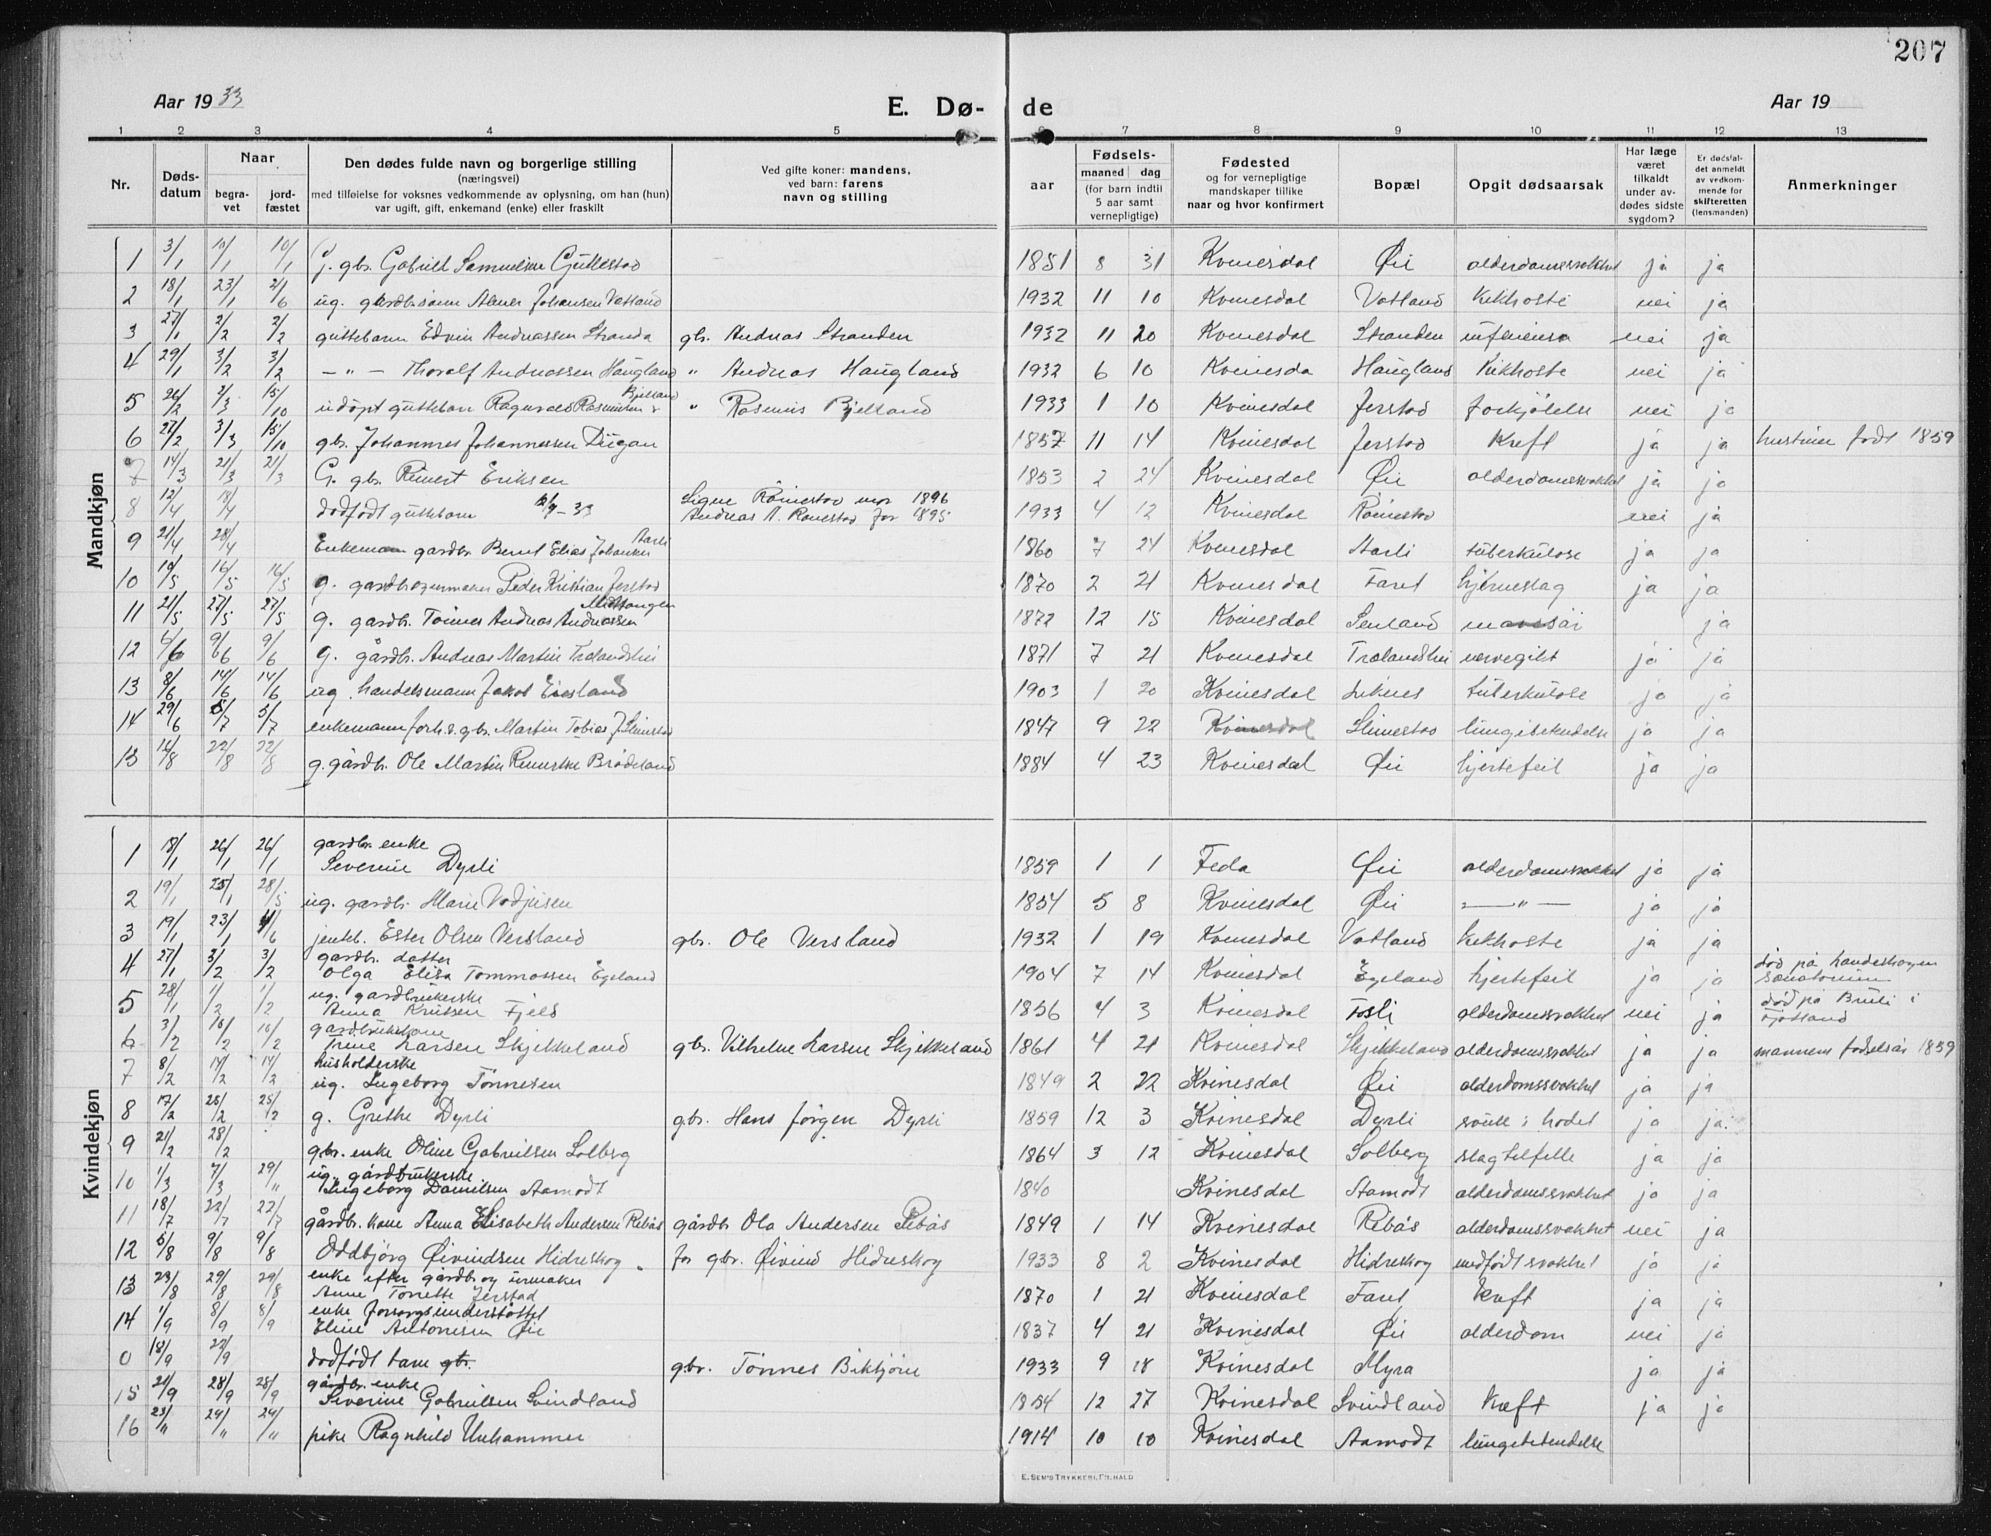 207
Aar 1933
E. Dø- de
Aar 19
1 2 3 4 5 6 7 8 9 10 11 12 13
Nr.
Døds-datum
Naar
begra-vet
jord-fæstet
Den dødes fulde navn og borgerlige stilling
(næringsvei)
med tilføielse for voksnes vedkommende av oplysning, om han (hun)
var ugift, gift, enkemand (enke) eller fraskilt
Ved gifte koner: mandens,
ved barn: farens
navn og stilling
aar
Fødsels-
maaned dag
(for barn indtil
5 aar samt
vernepligtige)
Fødested
og for vernepligtige
mandskaper tillike
naar og hvor konfirmert
Bopæl
Opgit dødsaarsak
Har læge
været
tilkaldt
under av-
dødes sidste
sygdom?
Er dødsfal-
det anmeldt
av vedkom-
mende for
skifteretten
(lensmanden)
Anmerkninger
Mandkjøn
1 3/1 10/1 10/1 G. gbr. Gabriel Samuelsen Gullestad 1851 8 31 Kvinesdal Øie alderdomssvakhet ja ja
2 18/1 23/1 2/6 ug. gbr. sønn Johansen Vatland 1932 11 10 Kvinesdal Vatland Kikhoste nei ja
3 27/1 2/2 2/2 guttebarn Edvin Andreassen Stranda gb. Andreas Stranden 1932 11 20 Kvinesdal Stranden influensa nei ja
4 29/1 3/2 3/2 — " — Thoralf Andreassen Haugland " Andreas Haugland 1932 6 10 Kvinesda Haugland Kikhoste nei ja
5 26/2 3/3 15/10 udøpt guttebarn Ragnvald Rasmussen Bjelland " Rasmus Bjelland 1933 1 10 Kvinesdal Jerstad forkjølelse nei ja
6 27/2 3/3 15/10 gb. Johannes Johannessen Dugan 1857 11 14 Kvinesdal Jerstad Kreft ja ja hustruen født 1859
7 14/3 21/3 21/3 G. gb. Reinert Eriksen 1853 2 24 Kvinesdal Øie alderdomssvakhet ja ja
8 12/4 18/4 dødfødt guttebarn 12/4-33 Signe Røinestad mor 1896
Andreas A. Rønestad far 1895 1933 4 12 Kvinesdal Røinestad nei ja
9 21/4 28/4 Enkemann gardbr. Bernt Elias Johansen Aarli 1860 7 24 Kvinesdal Aarli tuberkulose ja ja
10 10/5 16/5 16/5 g. gardbr og urmaker Peder Kristian Jerstad 1870 2 21 Kvinesdal Faret hjerneslag ja ja
11 21/5 27/5 27/5 g. gardbr. Tønnes Andreas Andreassen 1872 12 15 Kvinesdal Senland mavesår ja
12 4/6 9/6 9/6 g. gårdbr. Andreas Martin Trælandshei 1871 7 21 Kvinesdal Trælandshei nervegikt ja ja
13 8/6 14/6 14/6 ug. handelsmann Jakob Eiesland 1903 1 20 Kvinesdal Liknes tuberkulose ja ja
14 29/6 5/7 5/7 enkemann forh.v. gbr. Martin Tobias J. Slimestad 1847 9 22 Kvinesdal Slimestad lungebetendelse ja ja
15 16/8 22/8 22/8 g. gårdbr. Ole Martin Reinertsen Brådeland 1884 4 23 Kvinesdal Øie hjertefeil ja ja
Kvindekjøn
1 18/1 26/1 26/1 gardbr. enke
Severine Dyrli 1859 1 1 Feda Øie alderdomssvakhet ja ja
2 19/1 25/1 28/5 ug. gardbr. Marie Vadjusen 1854 5 8 Kvinesdal Øie — " — ja ja
3 19/1 23/1 4/6 jenteb. Ester Olsen Versland gbr. Ole Versland 1932 1 19 Kvinesdal Vatland Kikhoste ja ja
4 27/1 3/2 3/2 gardbr. datter
Olga Elisa Tommassen Egeland 1904 7 14 Kvinesdal Egeland hjertefeil ja ja død på Landeskogen
Sanatorium
5 28/1 1/2 1/2 ug. gardbrukerske
Anna Knutsen Fjeld 1856 4 3 Kvinesdal Fosli alderdomssvakhet nei ja død på Bruli i
Fjotland
6 3/2 10/2 10/2 gardbrukerkone
Trine Larsen Skjekkeland gbr. Vilhelm Larsen Skjekkeland 1861 4 21 Kvinesdal Skjekkeland alderdomssvakhet ja ja mannens fødselsår 1859
7 8/2 14/2 14/2 husholderske
ug. Ingeborg Tønnesen 1849 2 22 Kvinesdal Øie alderdomssvakhet ja ja
8 17/2 25/2 25/2 g. Grethe Dyrli gbr. Hans Jørgen Dyrli 1859 12 3 Kvinesdal Dyrli svulst i hodet ja ja
9 21/2 28/2 gbr. enke Oline Gabrielsen Solberg 1864 3 12 Kvinesdal Solberg slagtilfelle ja ja
10 1/3 7/3 29/" ug. gårdbrukerske
Ingeborg Danielsen Aamodt 1840 Kvinesdal Aamodt alderdomssvakhet ja ja
11 18/7 22/7 22/7 gårdbr. kone Anna Elisabeth Andersen Rebås gårdbr Ola Andersen Rebås 1849 1 14 Kvinesdal Rebås alderdomssvakhet nei ja
12 5/8 9/8 9/8 Oddbjørg Øivindsen Hidreskog far gbr. Øivind Hidreskog 1933 8 2 Kvinesdal Hidreskog medfødt svakhet ja ja
13 23/8 29/8 29/8 enke efter gårdbr og urmaker
Anne Tonette Jerstad 1870 1 21 Kvinesdal Faret Kreft ja ja
14 1/9 8/9 8/9 enke forsorgsunderstøttet
Eline Antonisen Øie 1837 4 21 Kvinesdal Øie alderdom nei ja
0 18/9 22/9 dødfødt barn gbr. gbr. Tønnes Bikkjøen 1933 9 18 Kvinesdal Myra ja ja
15 21/9 28/9 28/9 gårdbr. enke
Severine Gabrielsen Svindland 1854 12 27 Kvinesdal Svindland Kreft ja ja
16 23/" 24/" 24/" pike Ragnhild Urhammer 1914 10 10 Kvinesdal Aamodt lungebetendelse
E. SEM'S TRYKKERI, FR.HALD